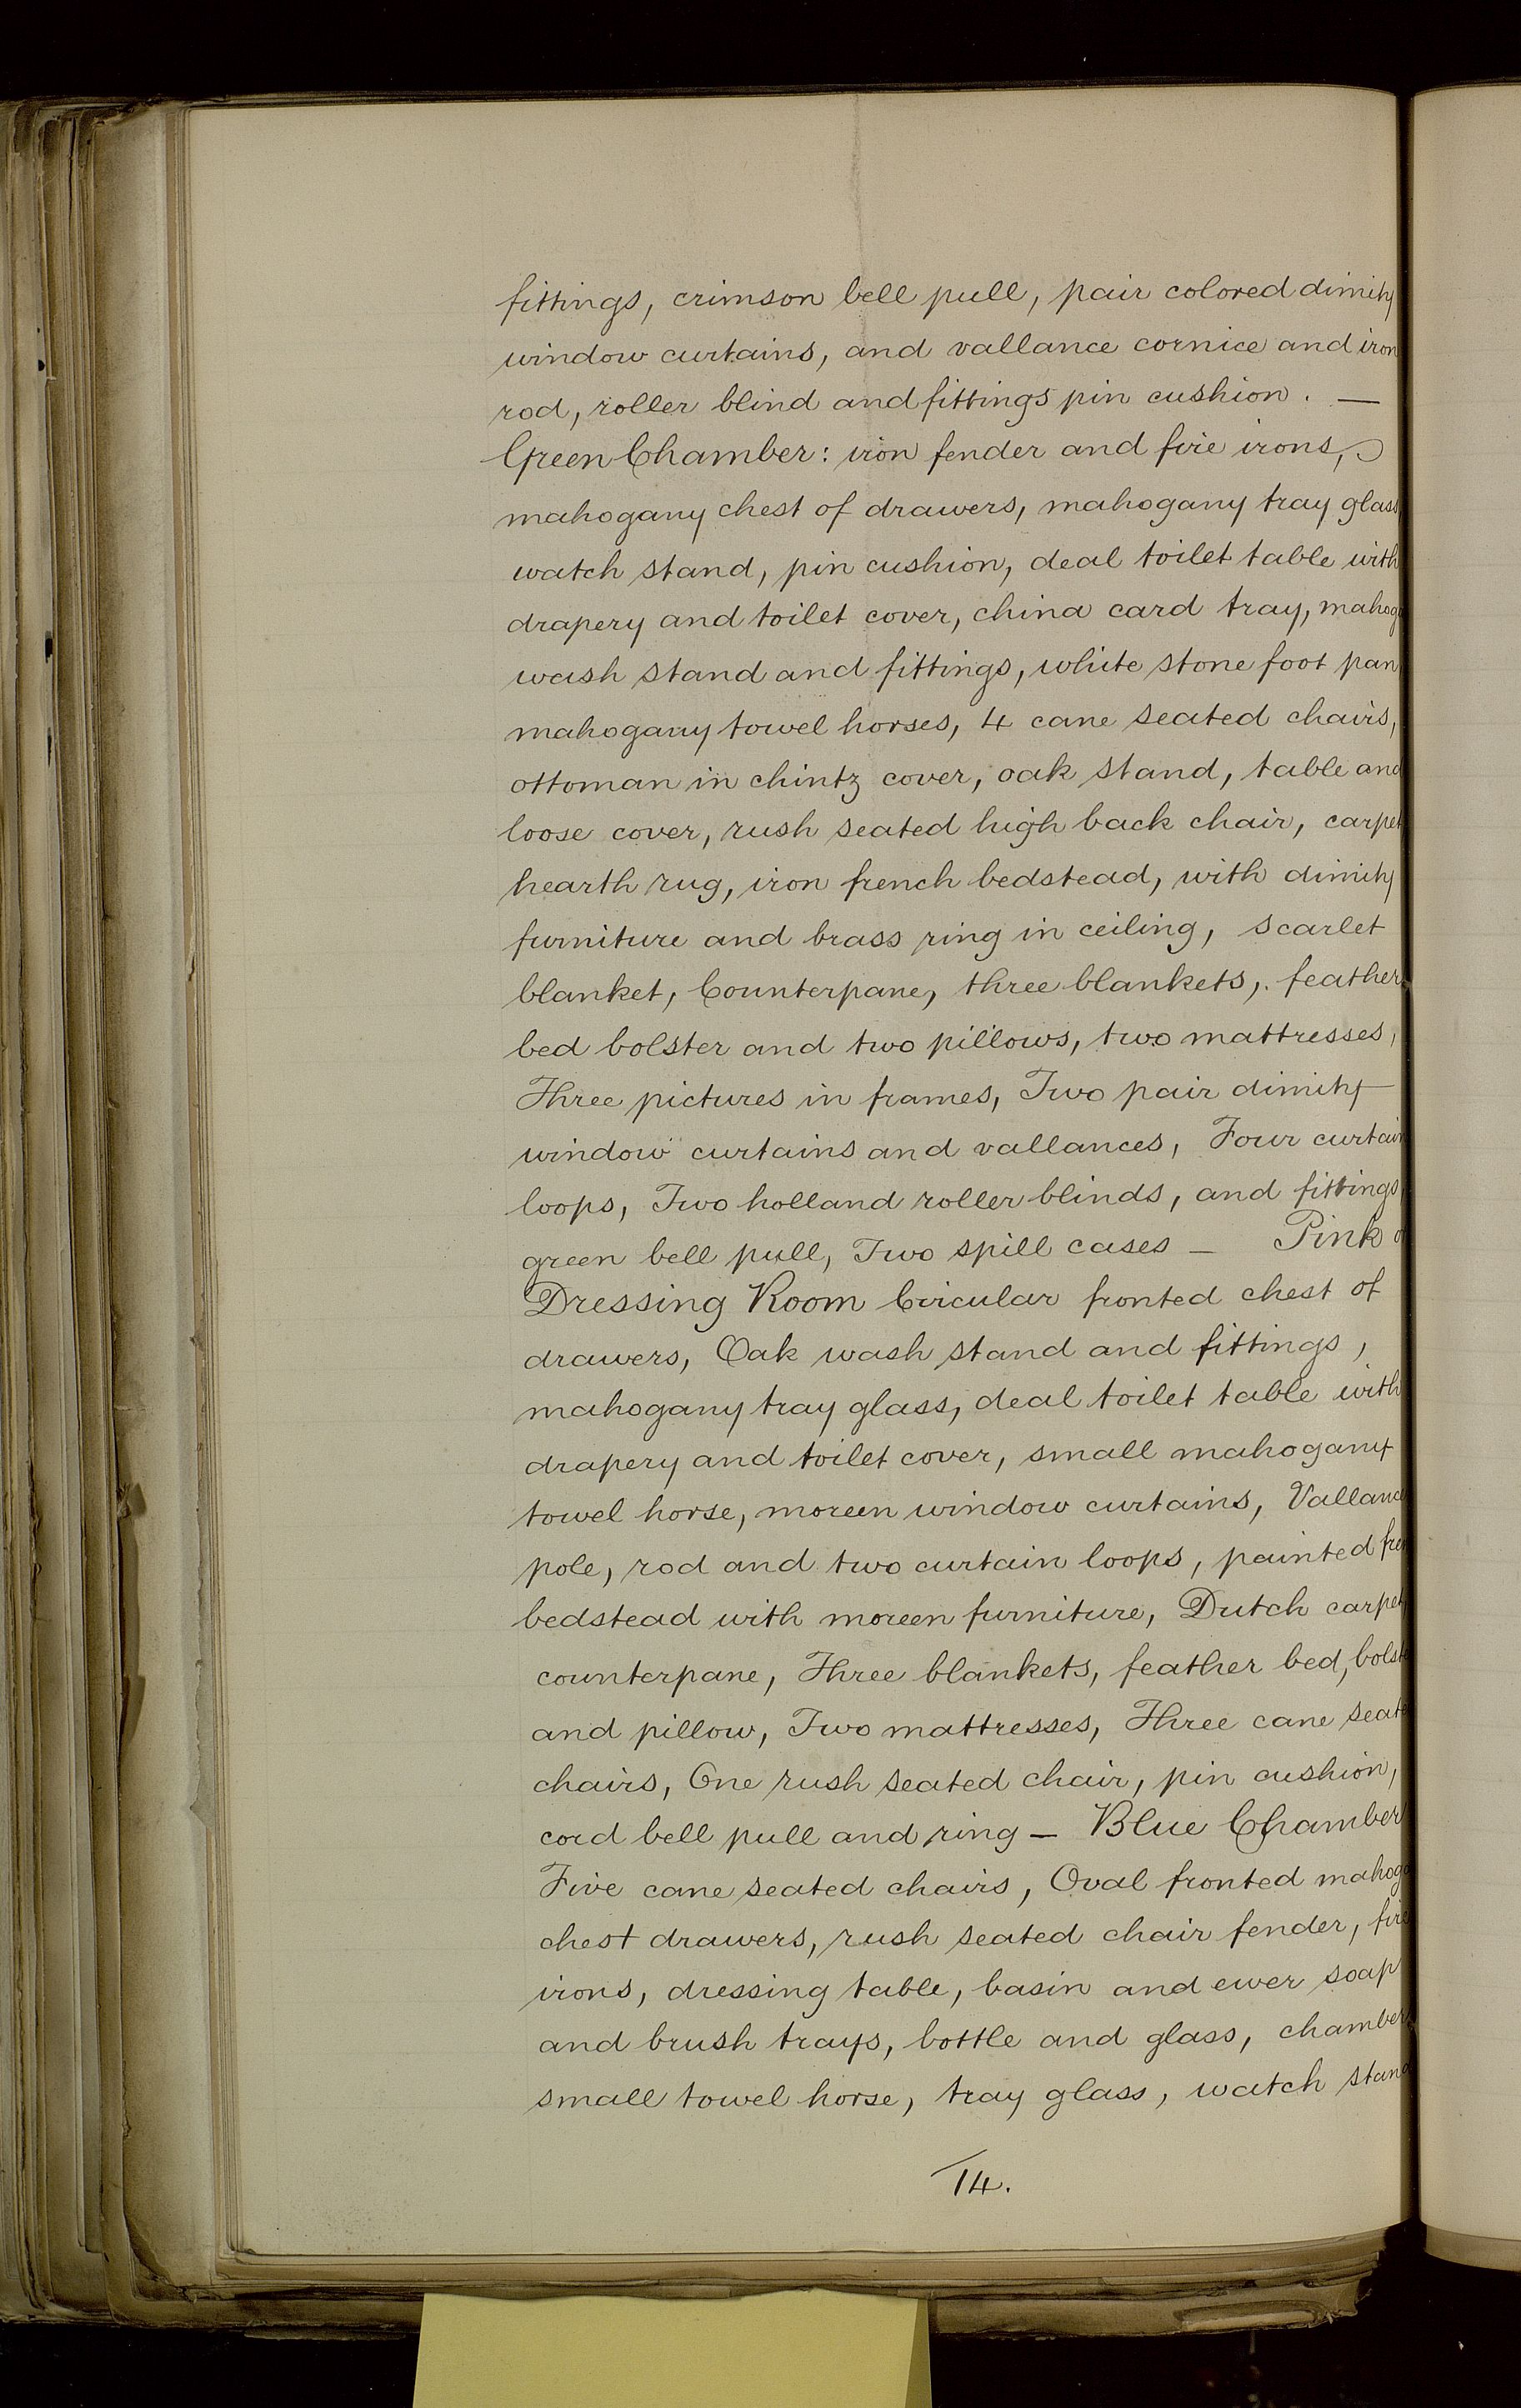 fittings, crimson bell pull, pair colored dimity
window curtains, and vallance cornice and iron
rod, roller blind and fittings pin cushion. —
Green Chamber: iron fender and fire irons,
mahogany chest of drawers, mahogany tray glass
watch stand, pin cushion, deal toilet table with
drapery and toilet cover, china card tray, mahog
wash stand and fittings, white stone foot pan
mahogany towel horses, 4 cane seated chairs,
ottoman in chintz cover, oak stand, table and
loose cover, rush seated high back chair, carpet
hearth rug, iron french bedstead, with dimity
furniture and brass ring in ceiling, scarlet
blanket, Counterpane, three blankets, feather
bed bolster and two pillows, two mattresses,
Three pictures in frames, Two pair dimity
window curtains and vallances, Four curtain
loops, Two holland roller blinds, and fittings,
green bell pull, Two spill cases — Pink or
Dressing Room Circular fronted chest of
drawers, Oak wash stand and fittings,
mahogany tray glass, deal toilet table with
drapery and toilet cover, small mahogany
towel horse, moreen window curtains, Vallance
pole, rod and two curtain loops, painted fren
bedstead with moreen furniture, Dutch carpet
counterpane, Three blankets, feather bed, bolste
and pillow, Two mattresses, Three cane seate
chairs, One rush seated chair, pin cushion,
cord bell pull and ring — Blue Chamber
Five cane seated chairs, Oval fronted mahoga
chest drawers, rush seated chair fender, fire
irons, dressing table, basin and ewer soap
and brush trays, bottle and glass, chamber
small towel horse, tray glass, watch stand
14.